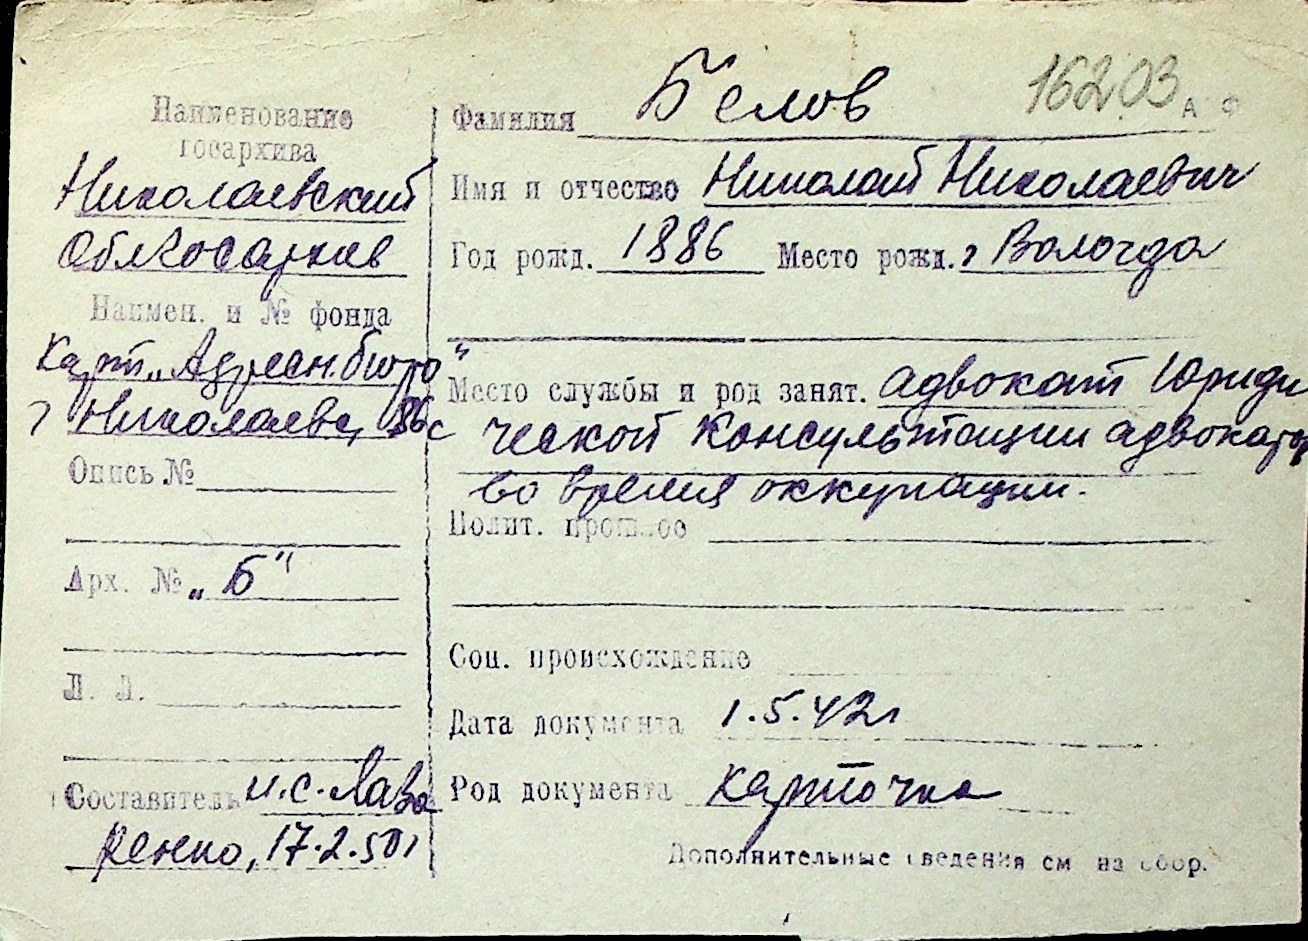 Наименование
госархива
Николаевский
Облгосархив
Наимен. и № фонда
Карт. „Адресн. бюро"
г Николаева,
Опись №
Арх. № „Б"
Л. Л.
Составитель и.с. Лавр
ренко, 17.2.50г
16203
А Ф
Фамилия Белов
Имя и отчество Николай Николаевич
Год рожд. 1886 Место рожд. г Вологда
Место службы и род занят. адвокат Юриди
ческой Консультации адвокатов
во время оккупации.
Полит. прошлое
Соц. происхождение
Дата документа 1.5.42г
Род документа карточка
Дополнительные сведения см на обор.